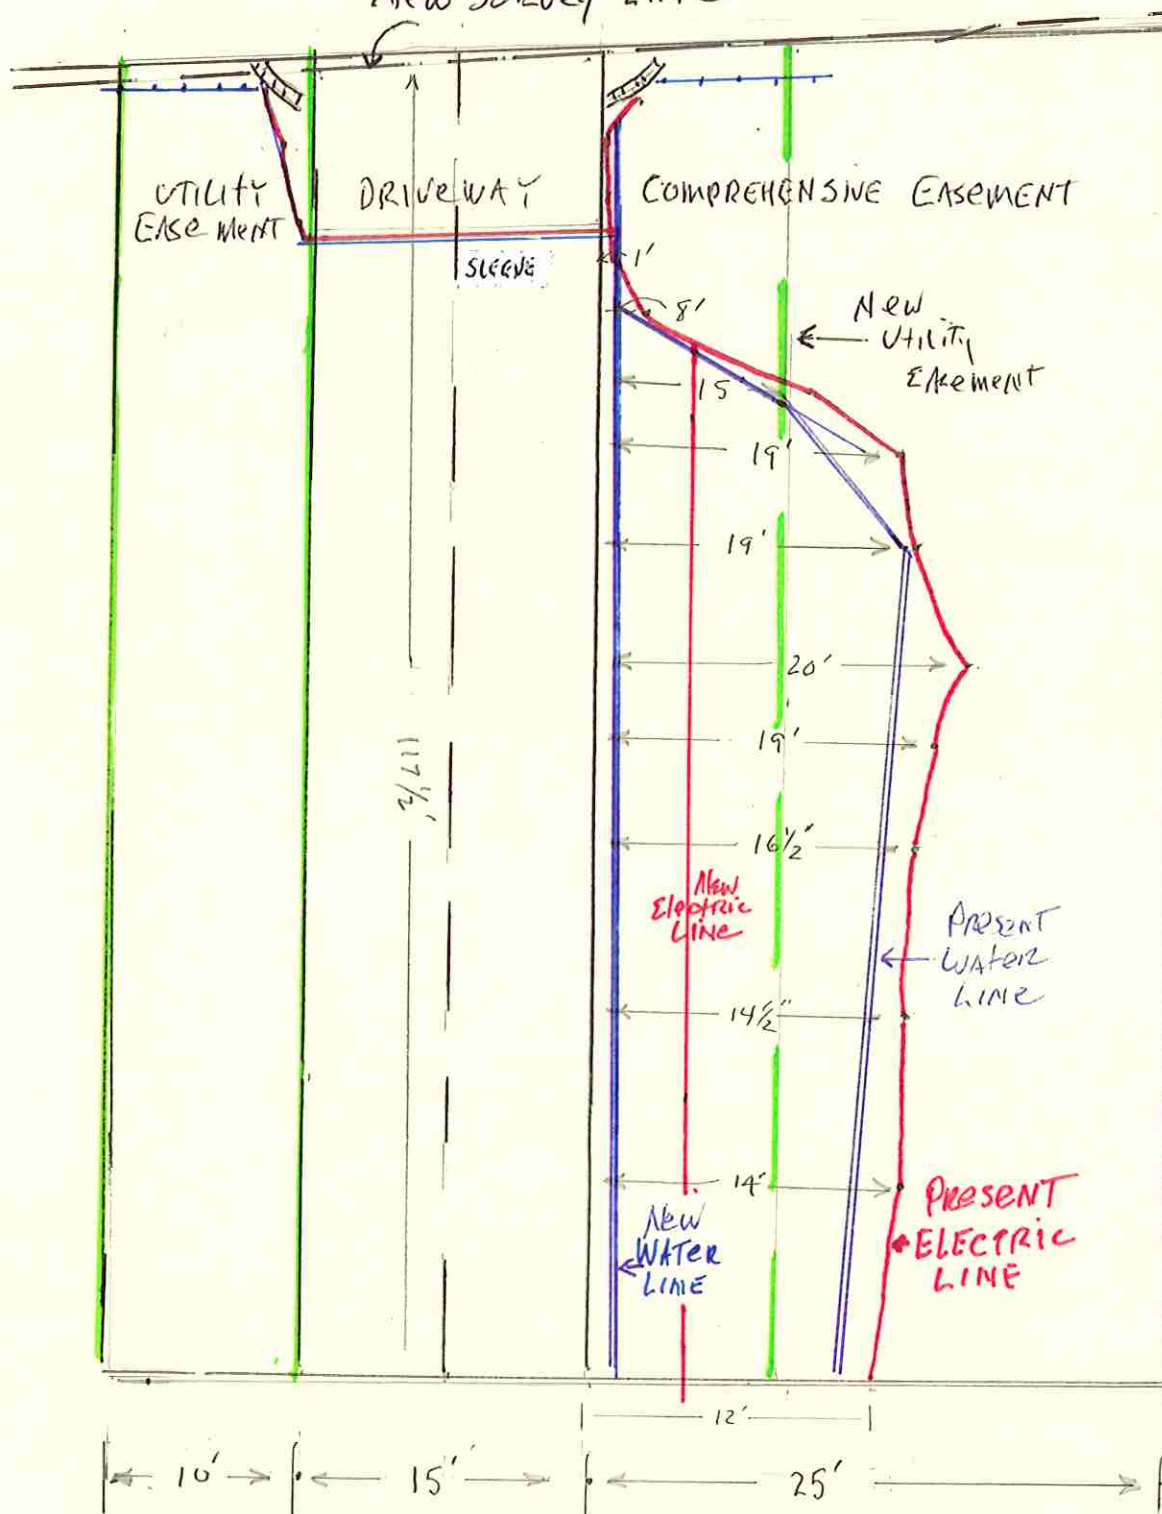 NEW SURVEY LINE
UTILITY
EASEMENT
DRIVEWAY
COMPREHENSIVE EASEMENT
SLEEVE
1'
8'
New
Utility
EAsement
15
19'
19'
20'
117½'
19'
16½"
New
Electric
LINE
PRESENT
WATER
LINE
14½"
14'
NEW
WATER
LINE
PRESENT
ELECTRIC
LINE
12'
10'
15'
25'